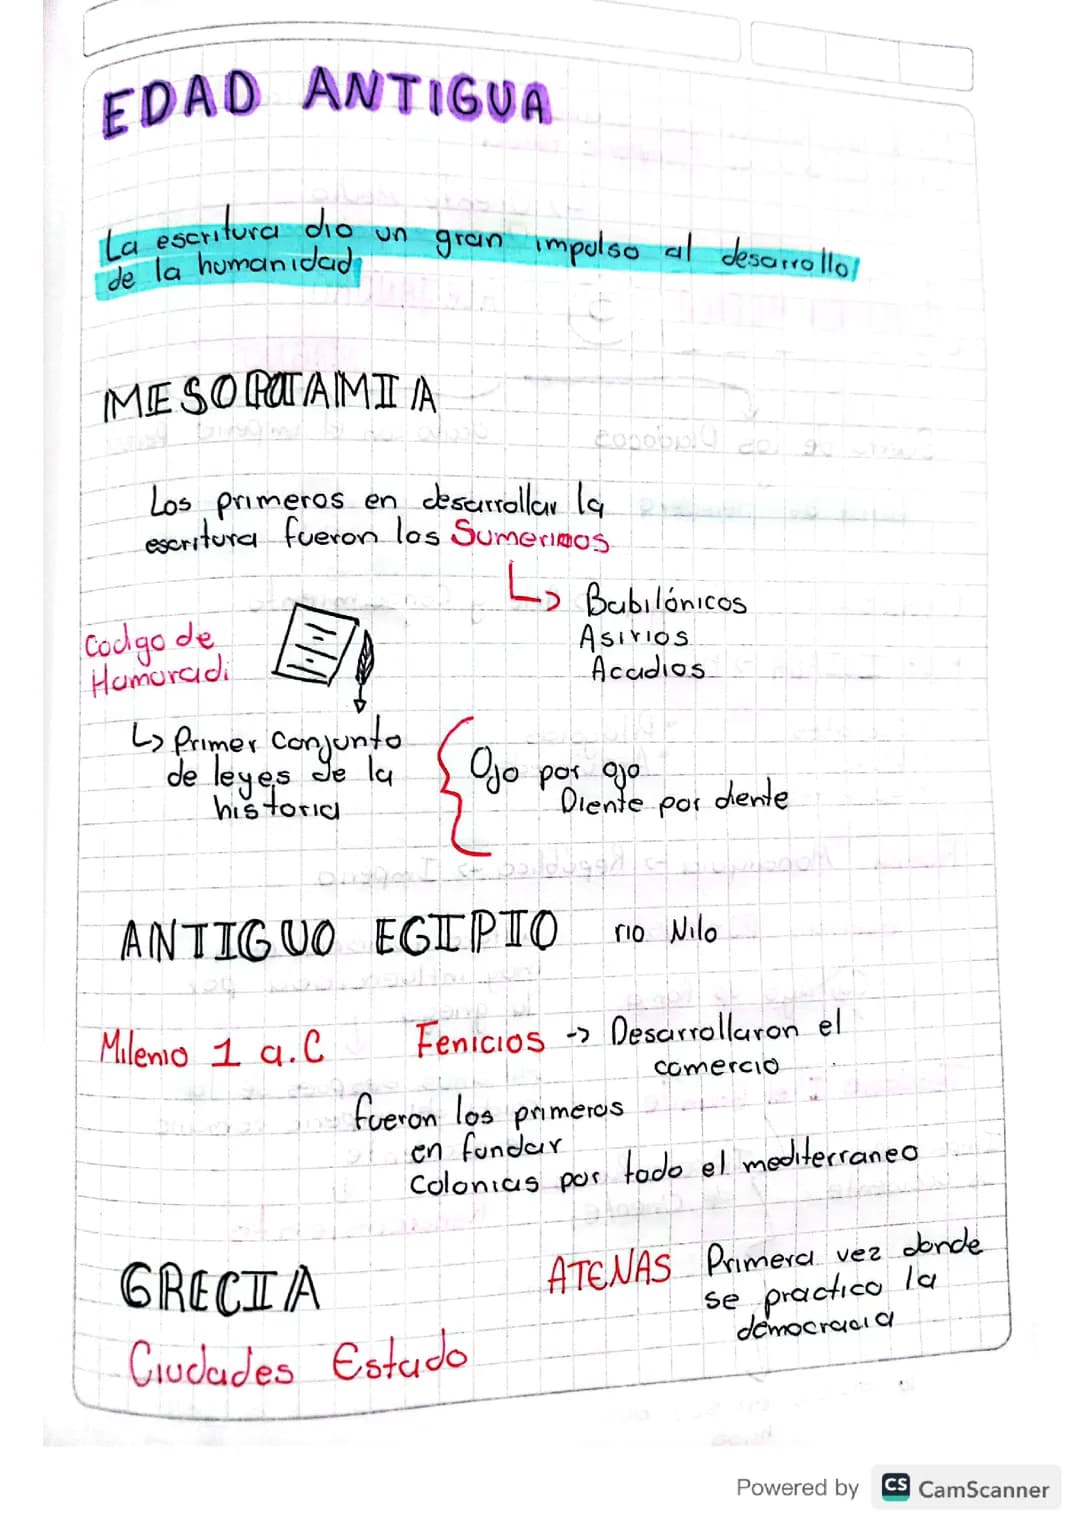 EDAD ANTIGUA
La escritura dio un gran impulso al desarrollo
de la humanidad
MESOPOTAMIA
Los primeros en desarrollar la
escritura fueron los Sumerios
↳ Babilónicos
Asirios
Acadios
Codigo de
Hamuradi
↳ Primer Conjunto
de leyes de la
historia
Ojo por ojo
Diente por diente
ANTIGUO EGIPTO rio Nilo
Milenio 1 a.C Fenicios -> Desarrollaron el
comercio
fueron los primeros
en fundar
Colonias por todo el mediterraneo
GRECIA
ATENAS Primera vez donde
se practico la
democracia
Ciudades Estado
Powered by CS CamScanner